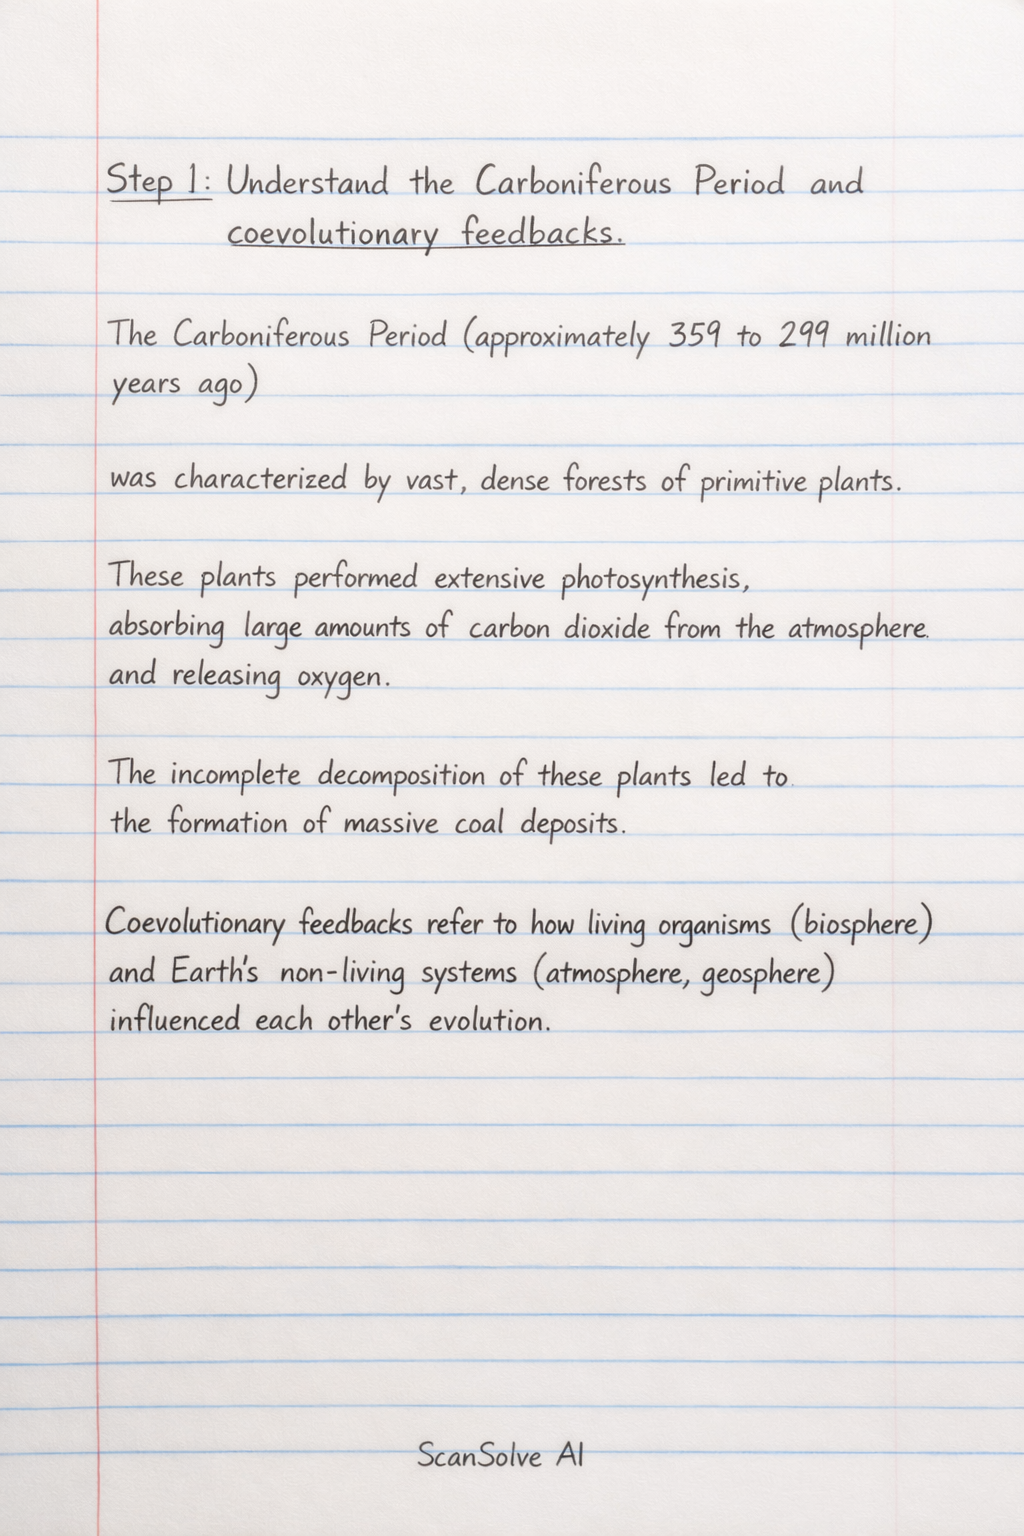 Step 1: Understand the Carboniferous Period and
coevolutionary feedbacks.
The Carboniferous Period (approximately 359 to 299 million
years ago)
was characterized by vast, dense forests of primitive plants.
These plants performed extensive photosynthesis,
absorbing large amounts of carbon dioxide from the atmosphere.
and releasing oxygen.
The incomplete decomposition of these plants led to.
the formation of massive coal deposits.
Coevolutionary feedbacks refer to how living organisms (biosphere)
and Earth's non-living systems (atmosphere, geosphere)
influenced each other's evolution.
ScanSolve AI